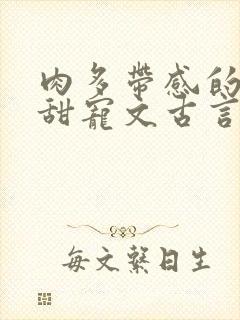 肉多带感的
甜宠文古言
每文繫日生